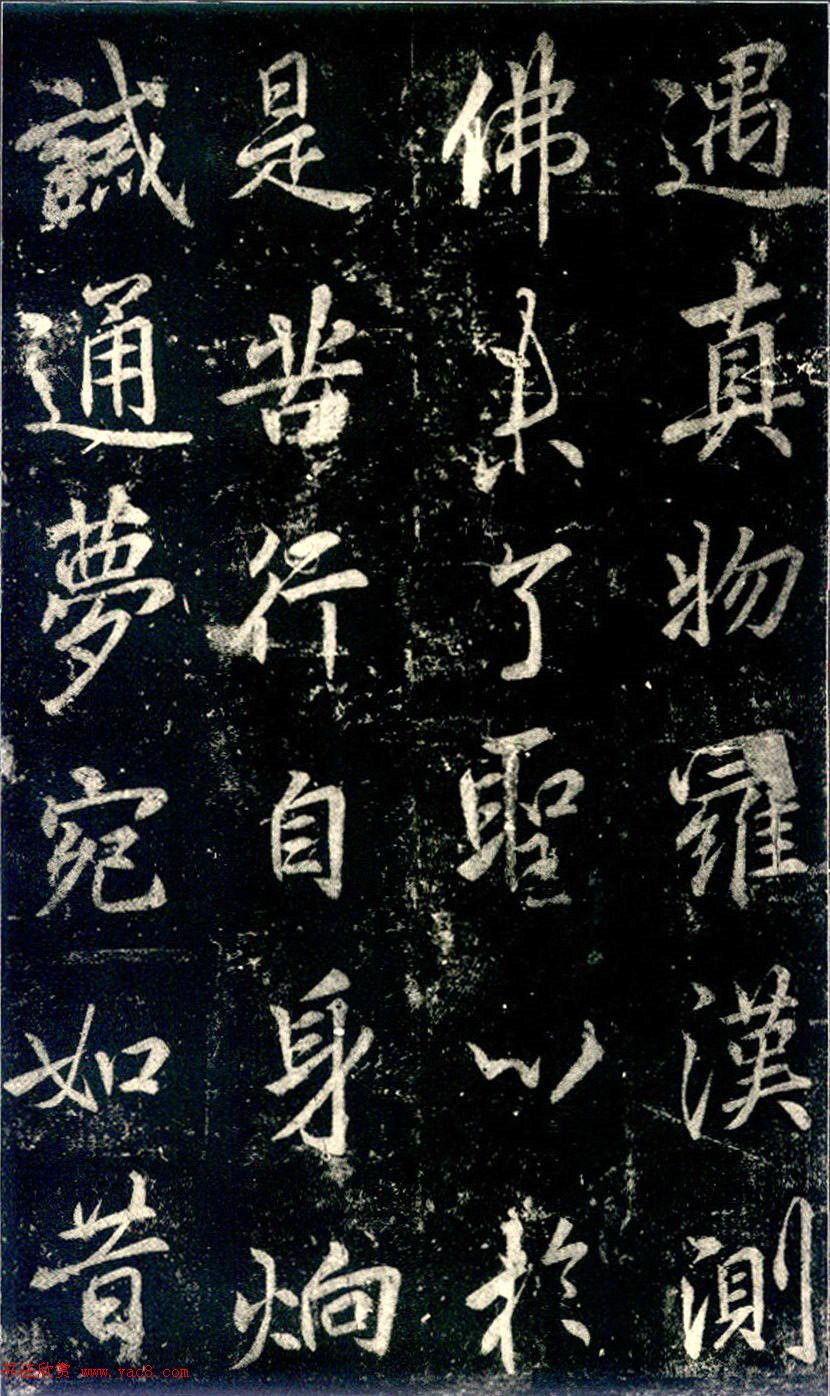 遇真物羅漢測
佛了聖以於
是苦行自身炯
誠通夢宛如昔
书法欣赏 www.yac8.com